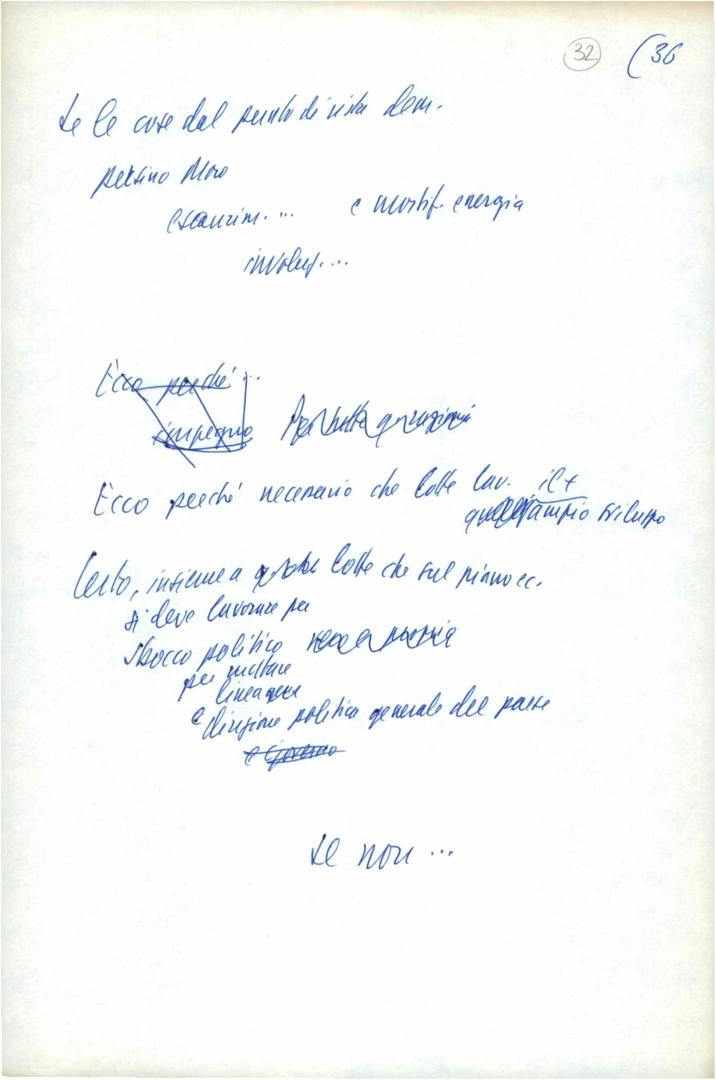 32 (36
Se le cose dal punto di vista dem.
persino Moro
esaurim. ... e mortif. energia
involuz. ...
Ecco perché ...
impegno Per tutta
Ecco perché necessario che lotte lav. il +
ampio sviluppo
Certo, insieme a lotte che sul piano ec.
si deve lavorare per
sbocco politico
per mutare
linea
e direzione politica generale del paese
e governo
Se non ...